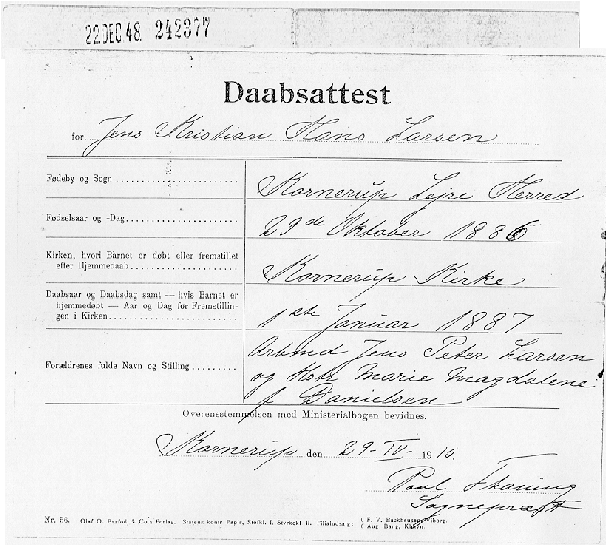 22 DEC 48. 242377
Daabsattest
for Jens Kristian Hans Larsen
Fødeby og Sogn
Kornerup Lejre Herred
Fødselsaar og -Dag
29de Oktober 1886
Kirken, hvori Barnet er døbt eller fremstillet
efter Hjemmedaab
Kornerup Kirke
Daabsaar og Daabsdag samt — hvis Barnet er
hjemmedøbt — Aar og Dag for Fremstillin-
gen i Kirken
1ste Januar 1887
Forældrenes fulde Navn og Stilling
Arbmd Jens Peter Larsen
og Marie Magdalene
f. Danielsen
Overensstemmelsen med Ministerialbogen bevidnes.
Kornerup den 29-IV- 1910.
Poul
Sognepræst
Nr. 56.